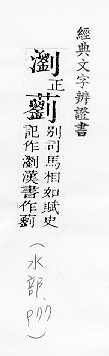 經典文字辨證書
瀏正
藰別司馬相如賦史
記作瀏漢書作藰
(水部, P77)